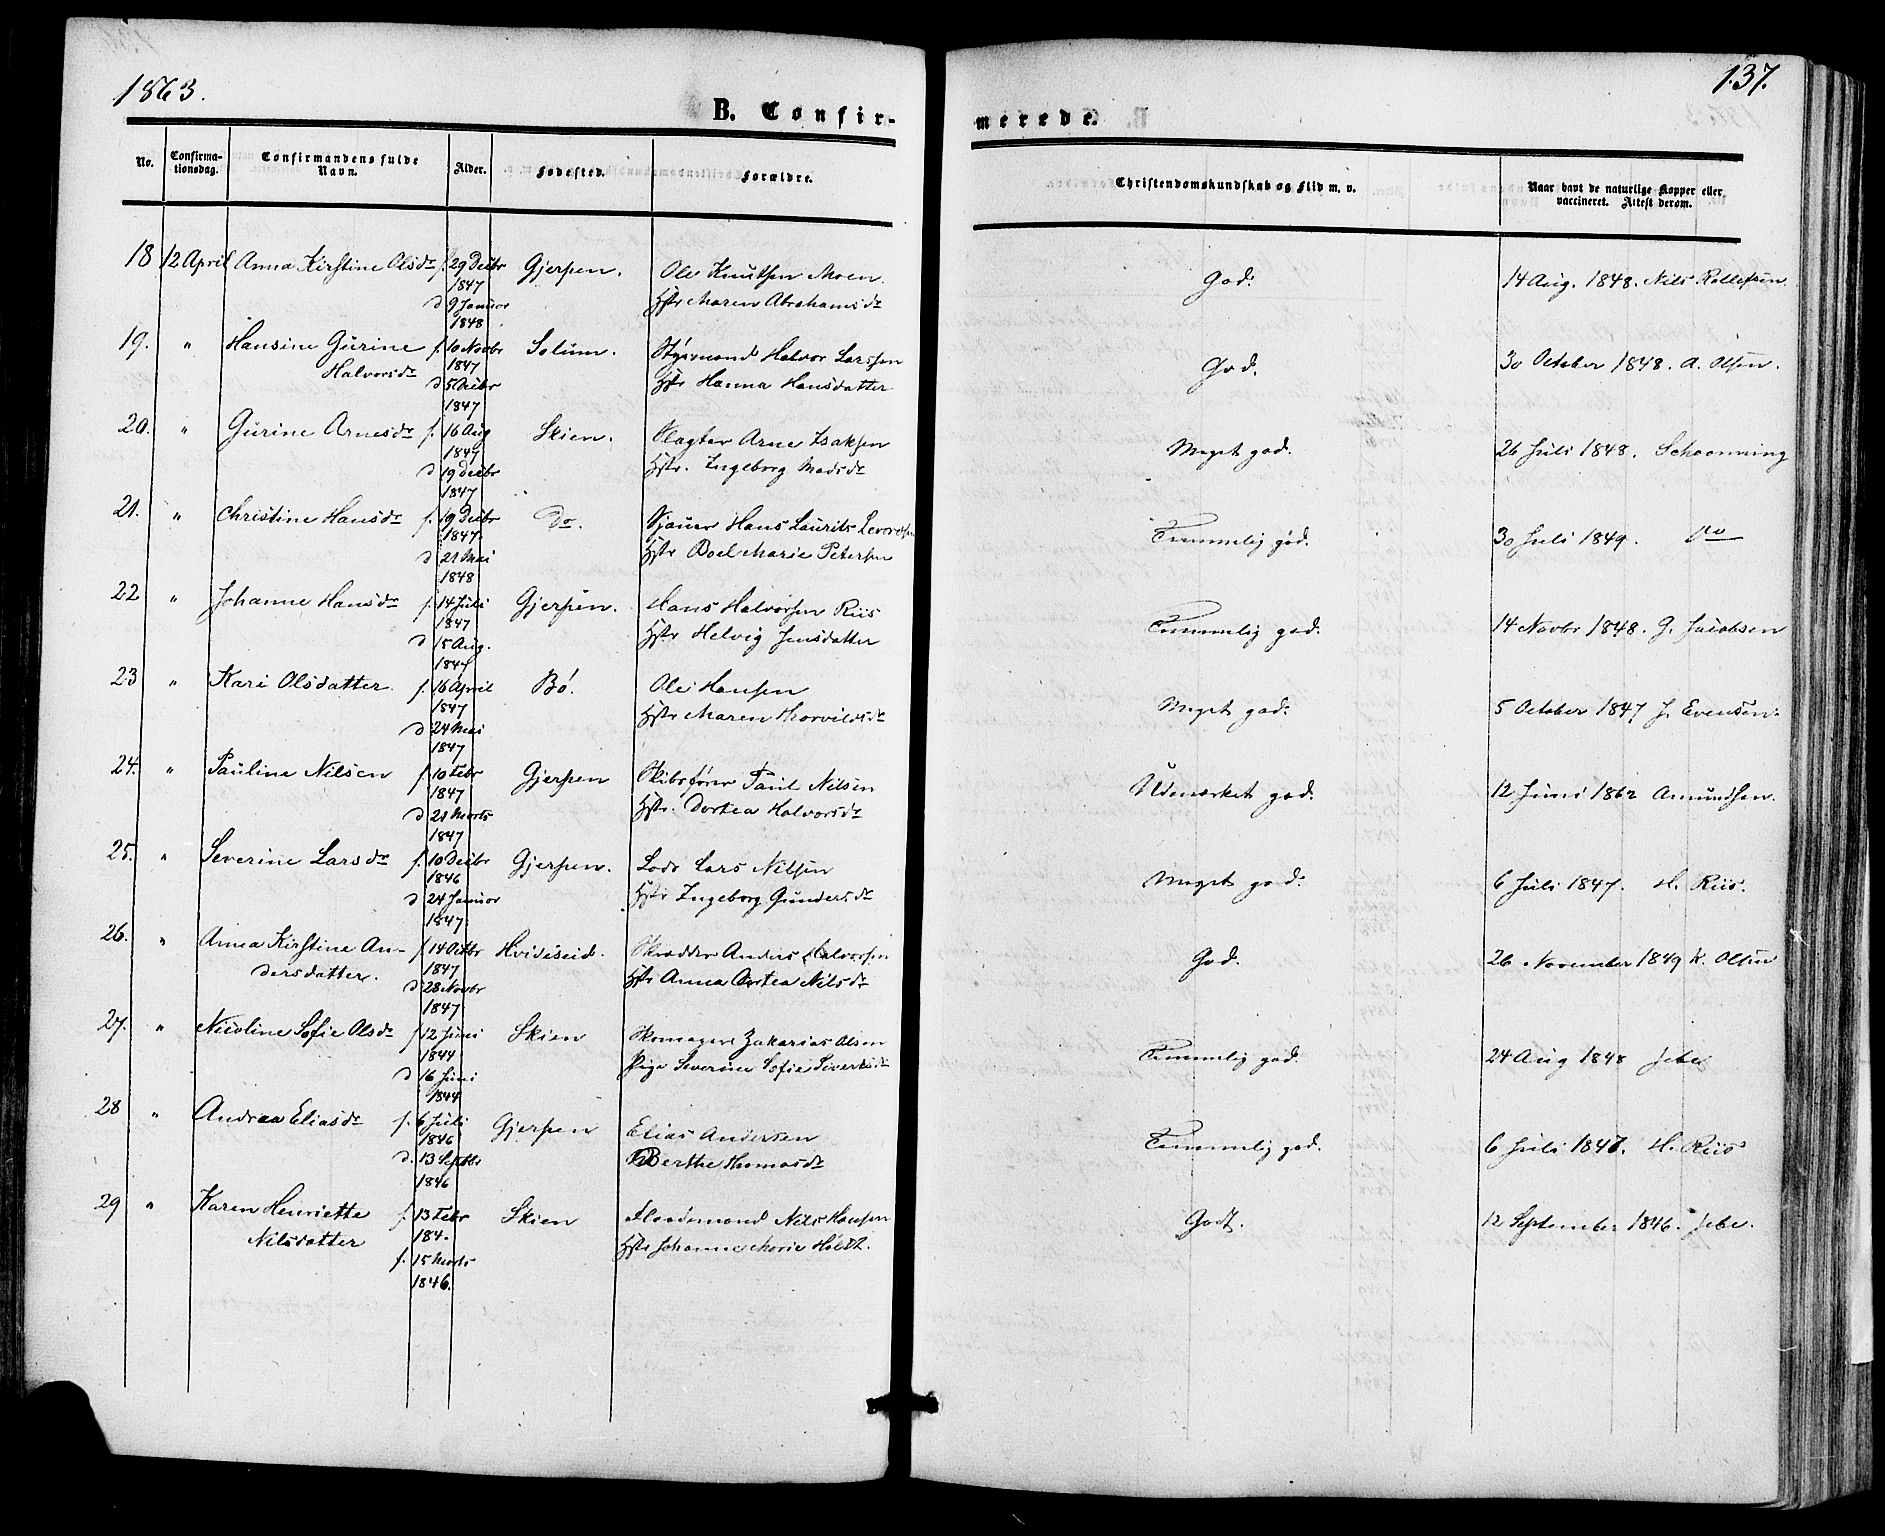 1863.
137.
B. Confir-
merede.
No.
Confirma-
tionsdag.
Confirmandens fulde
Navn.
Alder.
Fødested.
Forældre.
Christendomskundskab og Flid m. v.
Naar havt de naturlige Kopper eller
vaccineret. Attest derom.
18 12 April Anna Kirstine Olsdr f. 29 Decbr Gjerpen. Ole Knutsen Moen God. 14 Aug. 1848. Nils Rollefsen
1847
d 9 Januar Hstr Maren Abrahamsdr
1848
19. " Hansine Gurine f. 10 Novbr Solum. Halvor Larssen God. 30 October 1848. A. Olsen.
Halvorsdr 1847
d 5 Decbr Hstr Hanna Hansdatter
1847
20. " Gurine Arnesdr f. 16 Aug Skien. Slagter Arne Isaksen Meget god. 26 Juli 1848. Schoonning
1847
d 19 Decbr Hstr. Ingeborg Madsdr
1847
21. " Christine Hansdr f. 19 Decbr Do. Sjauer Hans Laurits Temmelig god. 30 Juli 1849. Do
1847
d 21 Mai Hstr Boel Marie Petersen
1848
22 " Johanne Hansdr f. 14 Juli Gjerpen. Hans Halvorsen Riis Temmelig god. 14 Novbr 1848. G. Jacobsen
1847
d 15 Aug. Hstr Helvig Jensdatter
1847
23 " Kari Olsdatter f. 16 April Bø. Ole Hansen Meget god. 5 October 1847 J. Evensen.
1847
d 24 Mai Hstr Maren Thorvildsdr
1847
24. " Pauline Nilsen f. 10 Febr Gjerpen Skibsfører Paul Nilsen Udmærket god. 12 Juni 1862 Amundsen.
1847
d 21 Marts Hstr. Dortea Halvorsdr
1847
25. " Severine Larsdr f. 10 Decbr Gjerpen. Lods Lars Nilsen Meget god. 6 Juli 1847. H. Riis.
1846
d 24 Januar Hstr Ingeborg Gundersdr
1847
26. " Anna Kirstine An- f 14 Octbr Hvideseid. Skrædder Anders Halvorsen God. 26 November 1849 K. Olsen
dersdatter. 1847
d 28 Novbr Hstr Anna Dortea Nilsdr
1847
27. " Nicoline Sofie Olsdr f 12 Juni Skien Skomager Zakarias Olsen Temmelig god. 24 Aug 1848 Jebe
1844
d 16 Juni Pige Severine Sofie Sivertsdr
1844
28 " Andrea Eliasdr f. 6 Juli Gjerpen Elias Andersen Temmelig god. 6 Juli 1847. H. Riis
1846
d. 13 Septbr Berthe Thomasdr
1846
29 " Karen Henriette f. 13 Febr Skien Nils Hansen Godt. 12 September 1846. Jebe.
Nilsdatter 184.
f. 15 Marts Hstr Johanne Marie Holdt.
1846.